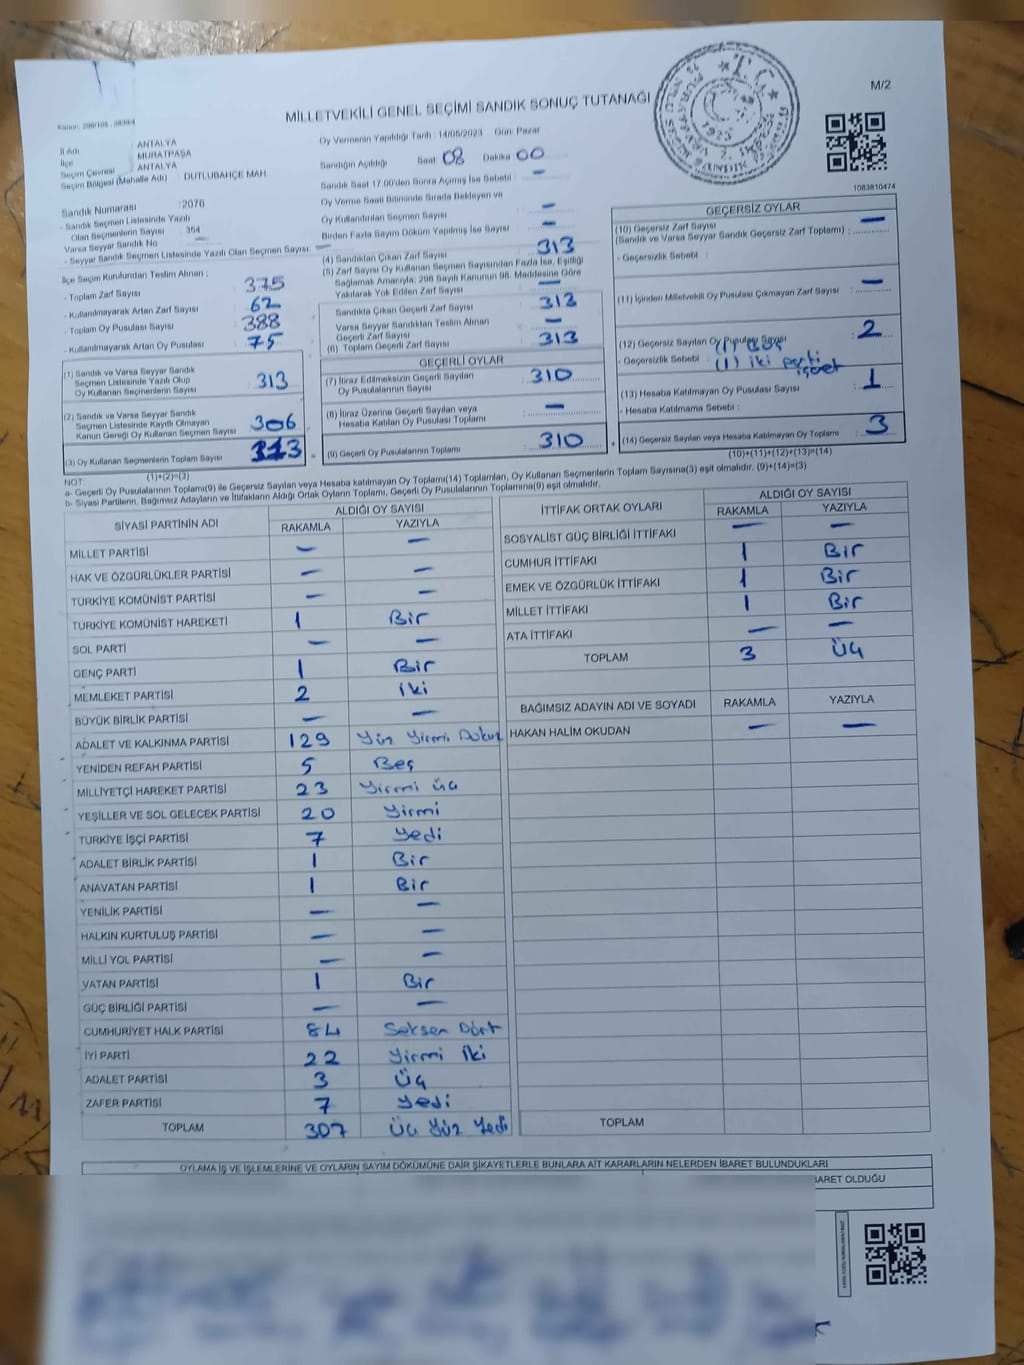 Kanun: 298/105
MİLLETVEKİLİ GENEL SEÇİMİ SANDIK SONUÇ TUTANAĞI
M/2
T.C.
1083810474
İl Adı : ANTALYA
İlçe : MURATPAŞA
Seçim Çevresi : ANTALYA
Seçim Bölgesi (Mahalle Adı) : DUTLUBAHÇE MAH.
Sandık Numarası : 2076
- Sandık Seçmen Listesinde Yazılı
Olan Seçmenlerin Sayısı : 354
Varsa Seyyar Sandık No —
- Seyyar Sandık Seçmen Listesinde Yazılı Olan Seçmen Sayısı: —
İlçe Seçim Kurulundan Teslim Alınan :
- Toplam Zarf Sayısı : 375
- Kullanılmayarak Artan Zarf Sayısı : 62
- Toplam Oy Pusulası Sayısı : 388
- Kullanılmayarak Artan Oy Pusulası : 75
(1) Sandık ve Varsa Seyyar Sandık
Seçmen Listesinde Yazılı Olup
Oy Kullanan Seçmenlerin Sayısı : 313
(2) Sandık ve Varsa Seyyar Sandık
Seçmen Listesinde Kayıtlı Olmayan
Kanun Gereği Oy Kullanan Seçmen Sayısı : 306
(3) Oy Kullanan Seçmenlerin Toplam Sayısı : 313
(1)+(2)=(3)
Oy Vermenin Yapıldığı Tarih : 14/05/2023 Gün: Pazar
Sandığın Açıldığı Saat 08 Dakika 00
Sandık Saat 17:00'den Sonra Açımış İse Sebebi : —
Oy Verme Saati Bitiminde Sırada Bekleyen ve
Oy Kullandırılan Seçmen Sayısı : —
Birden Fazla Sayım Döküm Yapılmış İse Sayısı : —
(4) Sandıktan Çıkan Zarf Sayısı : 313
(5) Zarf Sayısı Oy Kullanan Seçmen Sayısından Fazla İse, Eşitliği
Sağlamak Amacıyla; 298 Sayılı Kanunun 98. Maddesine Göre
Yakılarak Yok Edilen Zarf Sayısı : —
Sandıkta Çıkan Geçerli Zarf Sayısı : 313
Varsa Seyyar Sandıktan Teslim Alınan
Geçerli Zarf Sayısı : —
(6) Toplam Geçerli Zarf Sayısı : 313
GEÇERLİ OYLAR
(7) İtiraz Edilmeksizin Geçerli Sayılan
Oy Pusulalarının Sayısı : 310
(8) İtiraz Üzerine Geçerli Sayılan veya
Hesaba Katılan Oy Pusulası Toplamı : —
(9) Geçerli Oy Pusulalarının Toplamı : 310
GEÇERSİZ OYLAR
(10) Geçersiz Zarf Sayısı
(Sandık ve Varsa Seyyar Sandık Geçersiz Zarf Toplamı) : —
- Geçersizlik Sebebi :
(11) İçinden Milletvekili Oy Pusulası Çıkmayan Zarf Sayısı : —
(12) Geçersiz Sayılan Oy Pusulası Sayısı : 2
- Geçersizlik Sebebi : (1) Boş
(1) iki parti
(13) Hesaba Katılmayan Oy Pusulası Sayısı : 1
- Hesaba Katılmama Sebebi :
(14) Geçersiz Sayılan veya Hesaba Katılmayan Oy Toplamı : 3
(10)+(11)+(12)+(13)=(14)
NOT:
a- Geçerli Oy Pusulalarının Toplamı(9) ile Geçersiz Sayılan veya Hesaba katılmayan Oy Toplamı(14) Toplamları, Oy Kullanan Seçmenlerin Toplam Sayısına(3) eşit olmalıdır. (9)+(14)=(3)
b- Siyasi Partilerin, Bağımsız Adayların ve İttifakların Aldığı Ortak Oyların Toplamı, Geçerli Oy Pusulalarının Toplamına(9) eşit olmalıdır.
SİYASİ PARTİNİN ADI ALDIĞI OY SAYISI
RAKAMLA YAZIYLA
MİLLET PARTİSİ — —
HAK VE ÖZGÜRLÜKLER PARTİSİ — —
TÜRKİYE KOMÜNİST PARTİSİ — —
TÜRKİYE KOMÜNİST HAREKETİ 1 Bir
SOL PARTİ — —
GENÇ PARTİ 1 Bir
MEMLEKET PARTİSİ 2 iki
BÜYÜK BİRLİK PARTİSİ — —
ADALET VE KALKINMA PARTİSİ 129 Yüz Yirmi Dokuz
YENİDEN REFAH PARTİSİ 5 Beş
MİLLİYETÇİ HAREKET PARTİSİ 23 Yirmi üç
YEŞİLLER VE SOL GELECEK PARTİSİ 20 Yirmi
TÜRKİYE İŞÇİ PARTİSİ 7 Yedi
ADALET BİRLİK PARTİSİ 1 Bir
ANAVATAN PARTİSİ 1 Bir
YENİLİK PARTİSİ — —
HALKIN KURTULUŞ PARTİSİ — —
MİLLİ YOL PARTİSİ — —
VATAN PARTİSİ 1 Bir
GÜÇ BİRLİĞİ PARTİSİ — —
CUMHURİYET HALK PARTİSİ 84 Seksen Dört
İYİ PARTİ 22 Yirmi iki
ADALET PARTİSİ 3 Üç
ZAFER PARTİSİ 7 Yedi
TOPLAM 307 Üç Yüz Yedi
İTTİFAK ORTAK OYLARI ALDIĞI OY SAYISI
RAKAMLA YAZIYLA
SOSYALİST GÜÇ BİRLİĞİ İTTİFAKI — —
CUMHUR İTTİFAKI 1 Bir
EMEK VE ÖZGÜRLÜK İTTİFAKI 1 Bir
MİLLET İTTİFAKI 1 Bir
ATA İTTİFAKI — —
TOPLAM 3 Üç
BAĞIMSIZ ADAYIN ADI VE SOYADI RAKAMLA YAZIYLA
HAKAN HALİM OKUDAN — —
TOPLAM
OYLAMA İŞ VE İŞLEMLERİNE VE OYLARIN SAYIM DÖKÜMÜNE DAİR ŞİKAYETLERLE BUNLARA AİT KARARLARIN NELERDEN İBARET BULUNDUKLARI
BARET OLDUĞU